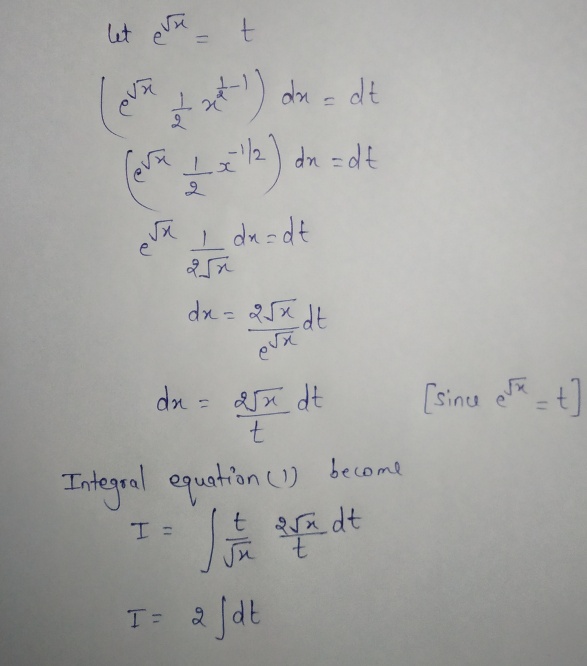 let e^√x = t
(e^√x 1/2 x^(1/2-1)) dx = dt
(e^√x 1/2 x^(-1/2)) dx = dt
e^√x 1/(2√x) dx = dt
dx = 2√x/e^√x dt
dx = 2√x/t dt [since e^√x = t]
Integral equation (1) become
I = ∫ t/√x 2√x/t dt
I = 2∫dt